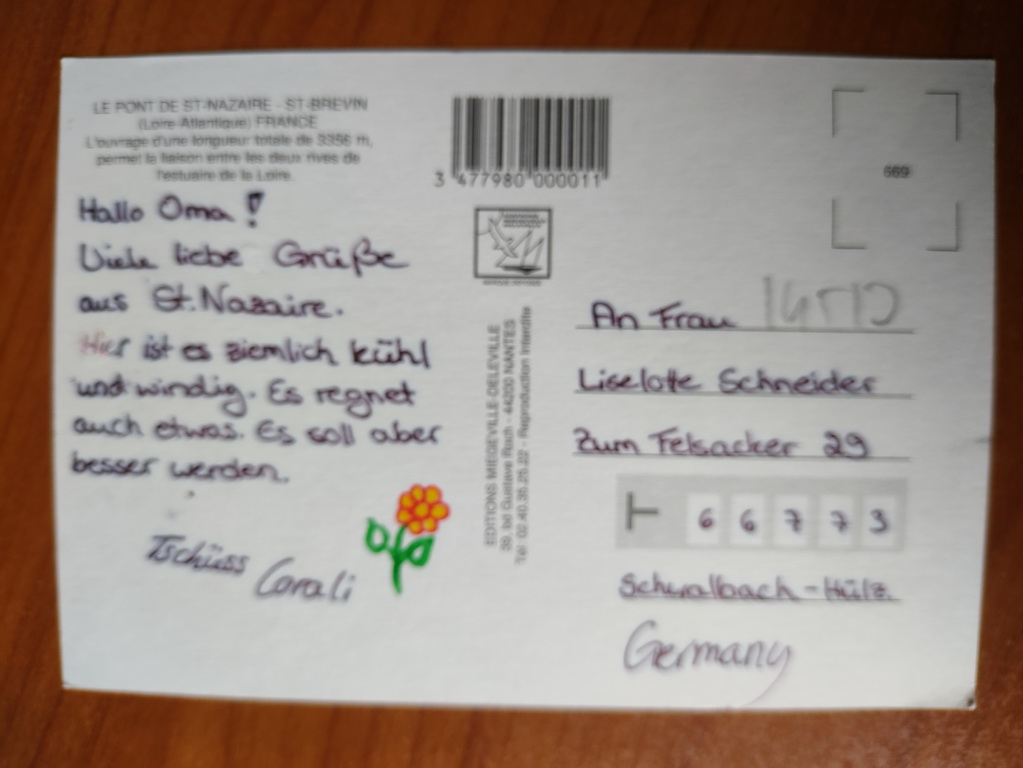 LE PONT DE ST-NAZAIRE - ST-BREVIN
(Loire-Atlantique) FRANCE
L'ouvrage d'une longueur totale de 3356 m,
permet la liaison entre les deux rives de
l'estuaire de la Loire.
3 477980 000011
669
Hallo Oma !
Viele liebe Grüße
aus St. Nazaire.
Hier ist es ziemlich kühl
und windig. Es regnet
auch etwas. Es soll aber
besser werden.
Tschüss
Corali
EDITIONS MIEGEVILLE-DELEVILLE
39, bd Gustave Roch - 44200 NANTES
Tél : 02.40.35.25.22 - Reproduction Interdite
An Frau
Liselotte Schneider
Zum Felsacker 29
6 6 7 7 3
Schwalbach - Hülz.
Germany